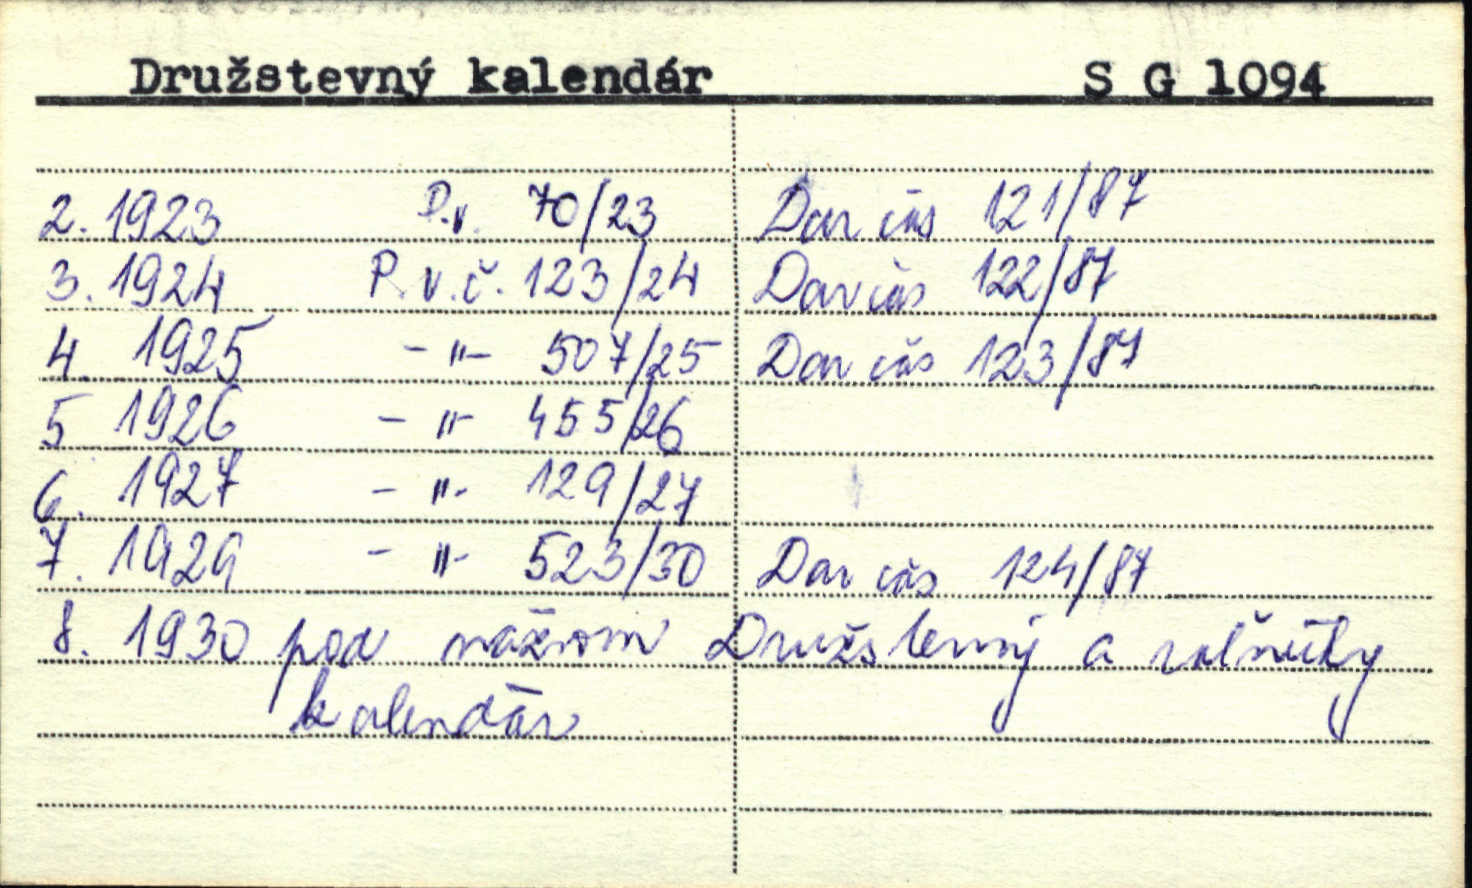 Družstevný kalendár S G 1094
2. 1923 P.v. 70/23 Dar čas 121/87
3. 1924 P.v.č. 123/24 Dar čas 122/87
4. 1925 -"- 507/25 Dar čas 123/87
5 1926 -"- 455/26
6. 1927 -"- 129/27
7. 1929 -"- 523/30 Dar čas 124/87
8. 1930 pod názvom Družstevný a roľnícky
kalendár